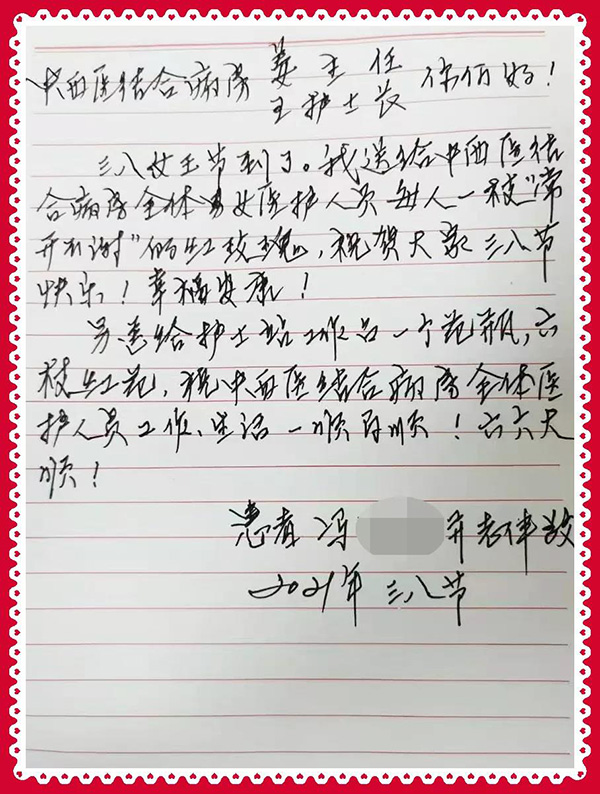 中西医结合病房 姜主任 你们好！
王护士长
三八女王节到了。我送给中西医结
合病房全体男女医护人员每人一枝“常
开不谢”的红玫瑰，祝贺大家三八节
快乐！幸福安康！
另送给护士站工作台一个花瓶，六
枝红花，祝中西医结合病房全体医
护人员工作、生活一顺百顺！六六大
顺！
患者 冯 并老伴致
2021年 三八节